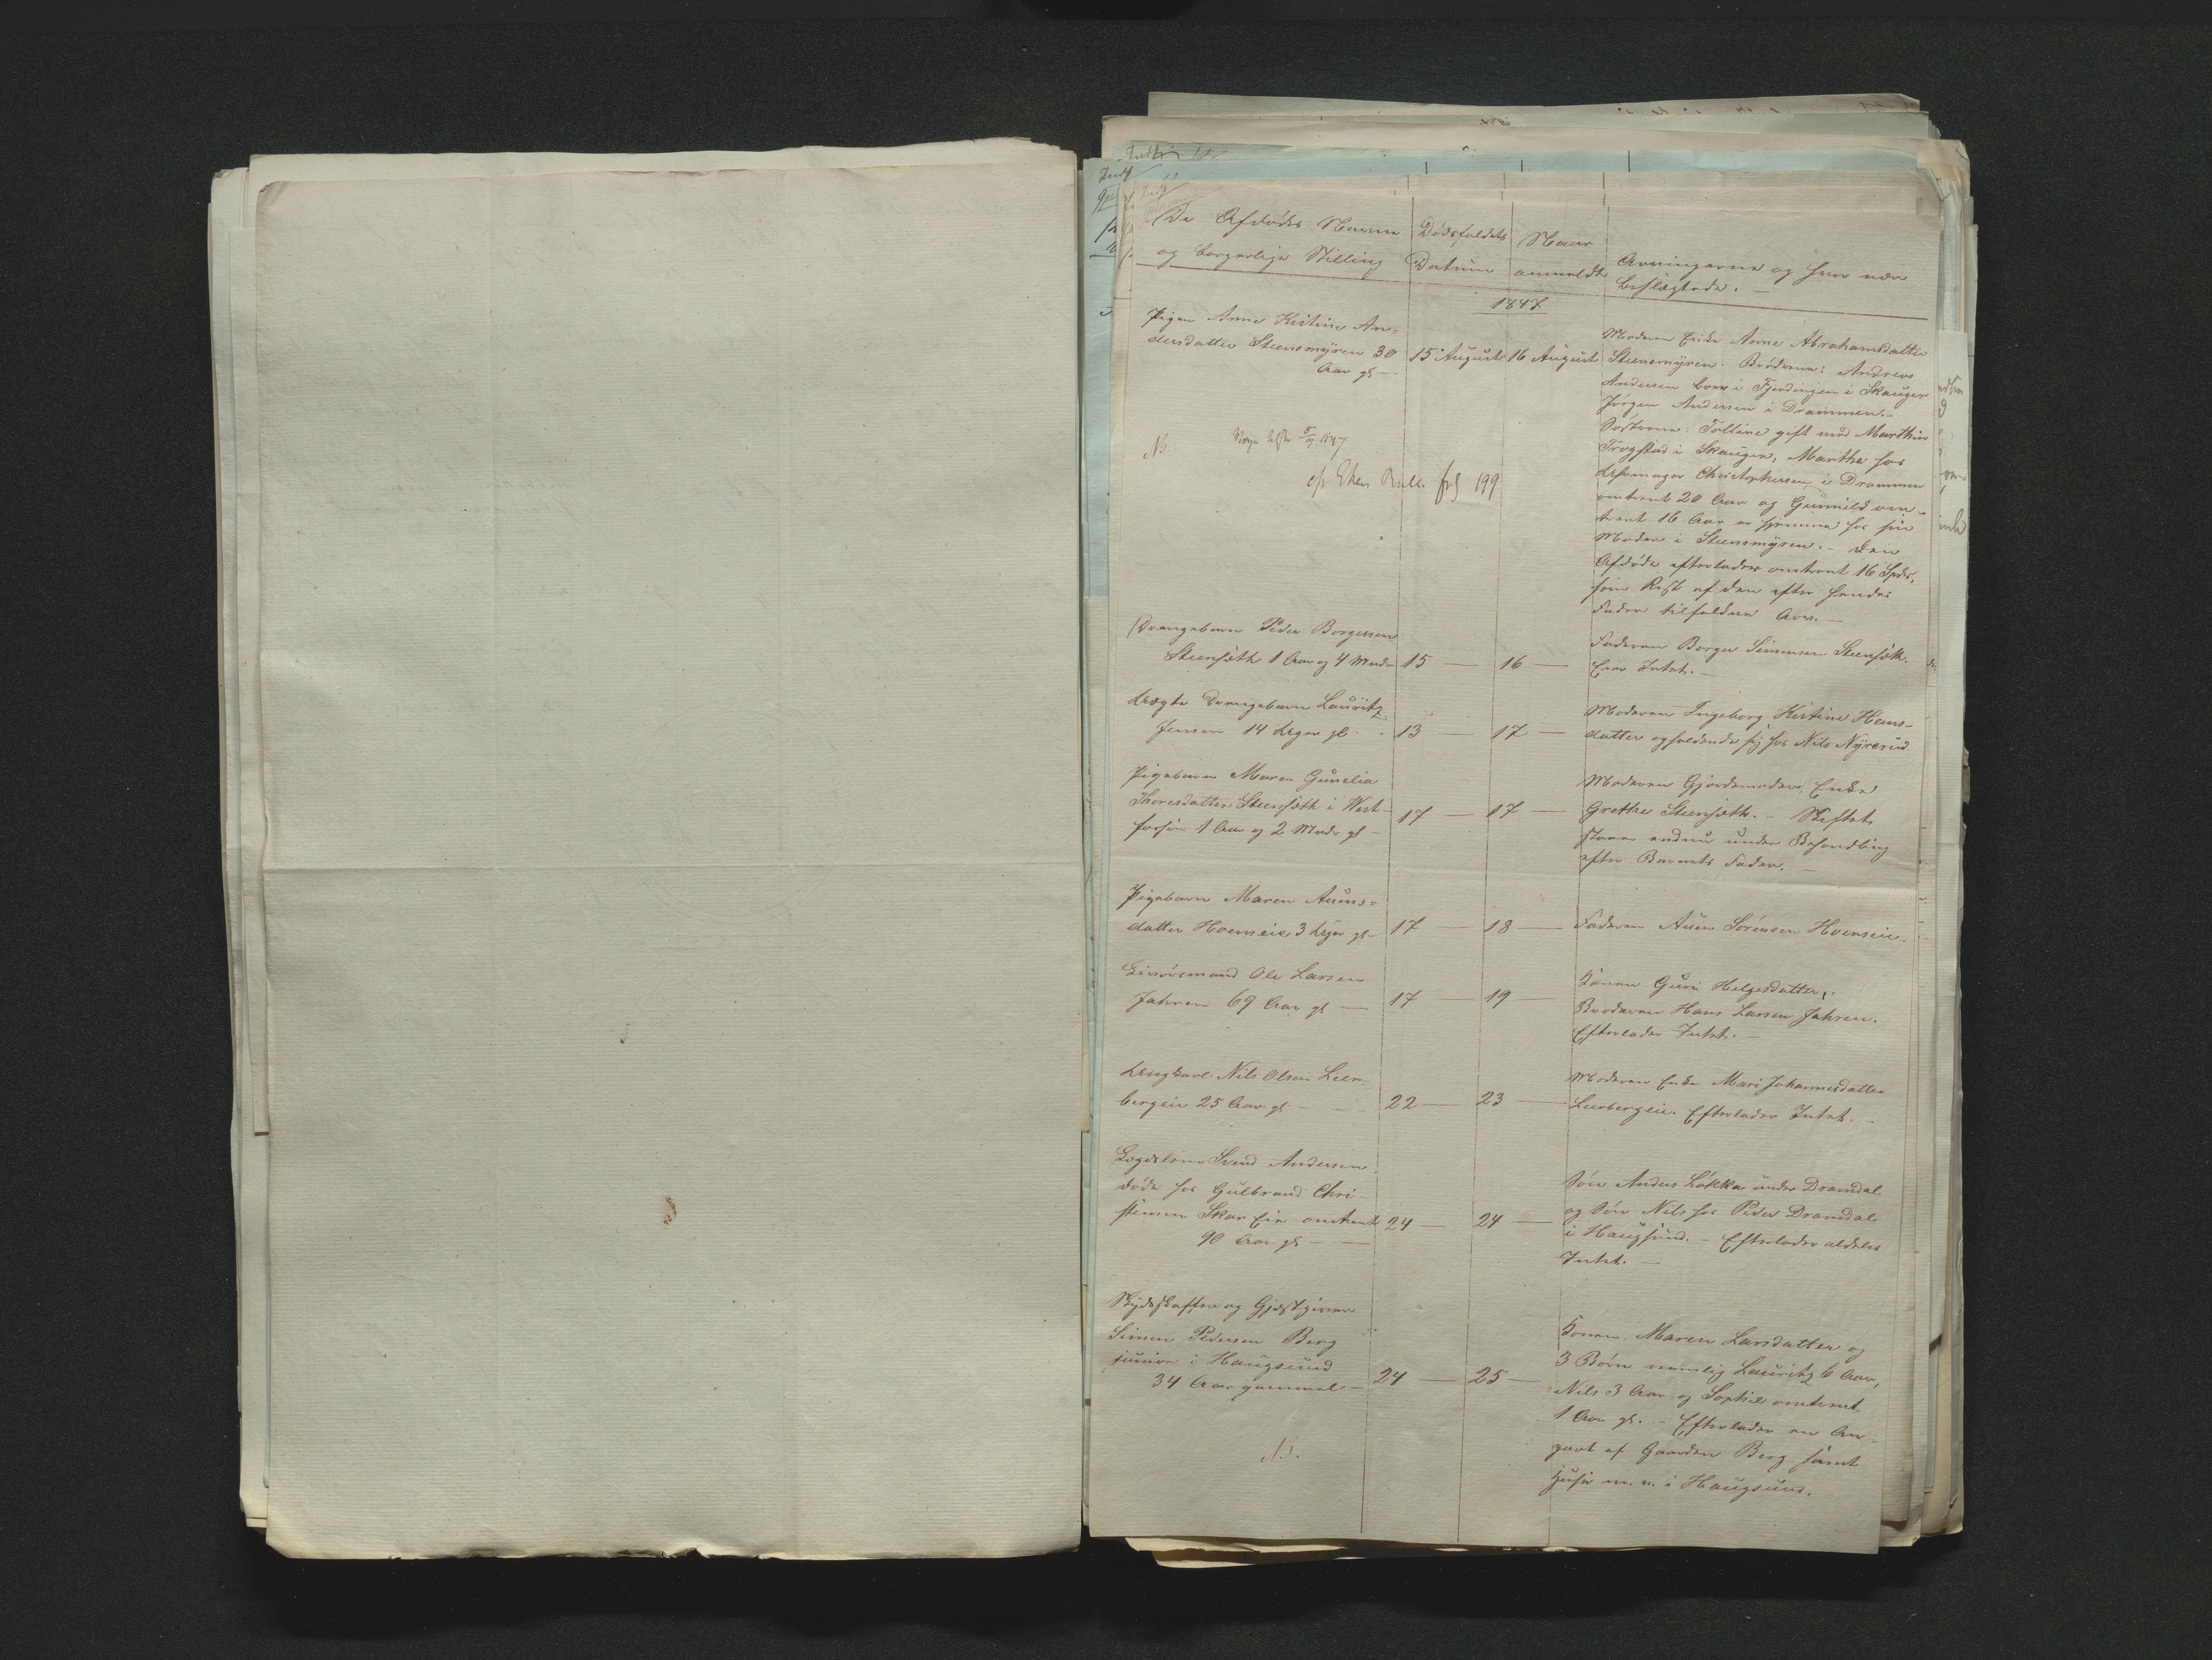 De Afdødes Navne
og borgerlige Stilling
Dødsfaldets
Datum
Naar
anmeldt
Arvingerne og hvor nær
beslægtede. —
1847
Pigen Anne Kistine An=
dersdatter Steensmyren 30
Aar gl —
15 August
16 August
Moderen Enke Anne Abrahamsdatter
Steensmyren. Brødrene: Andreas
Andersen boer i Fjerdingen i Skauger
Jørgen Andersen i Drammen. -
Søstrene: Tolline gift med Marthin
Trogstad i Skauger, Marthe hos
Uhrmager Christophersen i Drammen
omtrent 20 Aar og Gunnild om-
trent 16 Aar er hjemme hos sin
Moder i Steensmyren. - Den
Afdøde efterlader omtrent 16 Spd,
som Rest af den efter hendes
Fader tilfaldne Arv. —
Nb
5/9 1847
cfr Eker fol 199
Drengebarn Peder Borgersen
Steensæth 1 Aar og 4 Mnd-
15 —
16 —
Faderen Borger Simensen Steensæth.
Eier Intet. —
Uægte Drengebarn Lauritz
Jensen 14 Uger gl -
13 —
17 —
Moderen Ingeborg Kistine Hans-
datter opholdende sig hos Nils Nyrerud
Pigebarn Maren Gunelia
Thoresdatter Steensæth i Vest-
fossen 1 Aar og 2 Mndr gl -
17 —
17 —
Moderen Gjordemoder, Enke
Grethe Steensæth. - Skiftet
staaer endnu under Behandling
efter Barnets Fader. —
Pigebarn Maren Auens=
datter Hoenseie 3 Uger gl-
17 —
18 —
Faderen Auen Sørensen Hoenseie.
Livøremand Ole Larsen
Jahren 69 Aar gl —
17 —
19 —
Konen Guri Helgesdatter,
Broderen Hans Larsen Jahren.
Efterlader Intet. —
Ungkarl Nils Olsen Leer-
bergeie 25 Aar gl — —
22 —
23 —
Moderen Enke Mari Johannesdatter
Leerbergeie. Efterlader Intet. -
Lægdslem Svend Andersen
døde hos Gulbrand Chri-
stensen Skar Eie omtrent
90 Aar gl — —
24 —
24 —
Søn Anders Løkka under Dramdal
og Søn Nils hos Peder Dramdal
i Haugsund. - Efterlader aldeles
Intet. —
Skydsskaffer og Gjæstgiver
Simen Pedersen Berg
junior i Haugsund
34 Aar gammel —
24 —
25 —
Konen Maren Larsdatter og
3 Børn nemlig Lauritz 6 Aar,
Nils 3 Aar og Sophie omtrent
1 Aar gl. - Efterlader en An-
part af Gaarden Berg samt
Huse m. v. i Haugsund.
Nb.